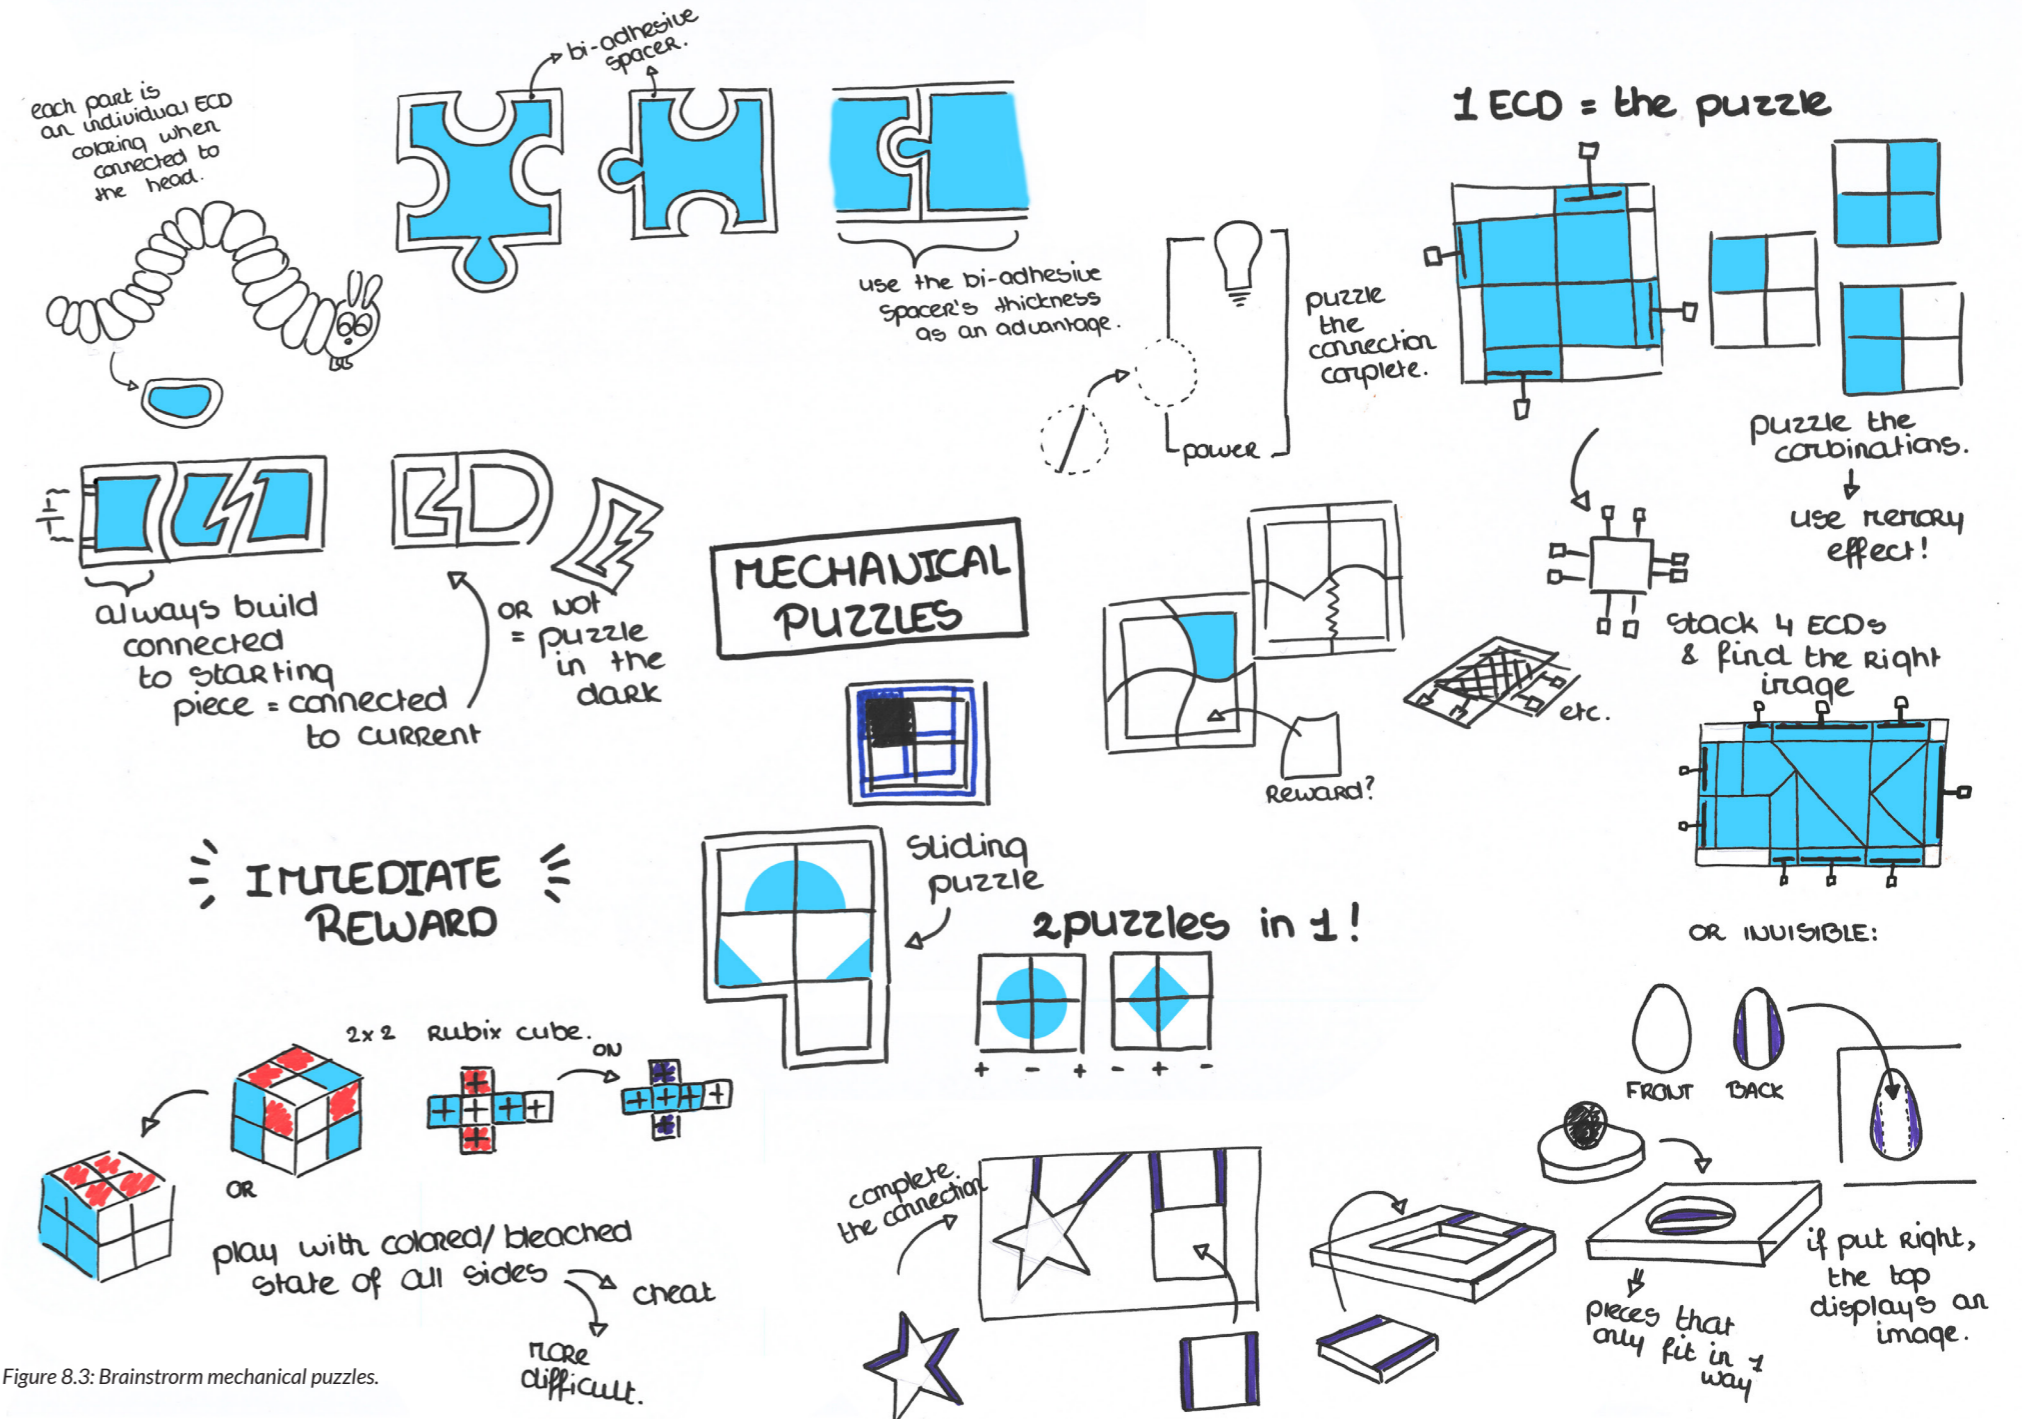 each part is
an individual ECD
coloring when
connected to
the head.
bi-adhesive
spacer.
use the bi-adhesive
spacer's thickness
as an advantage.
puzzle
the
connection
complete.
power
1 ECD = the puzzle
puzzle the
combinations.
use memory
effect!
stack 4 ECDs
& find the right
image
etc.
always build
connected
to starting
piece = connected
to current
OR NOT
= puzzle
in the
dark
MECHANICAL
PUZZLES
Reward?
IMMEDIATE
REWARD
sliding
puzzle
2 puzzles in 1!
+ - + - + -
OR INVISIBLE:
FRONT
BACK
2x2 Rubix cube.
ON
OR
play with colored/bleached
state of all sides
cheat
more
difficult.
complete
the connection
pieces that
only fit in 1
way
if put right,
the top
displays an
image.
Figure 8.3: Brainstrorm mechanical puzzles.